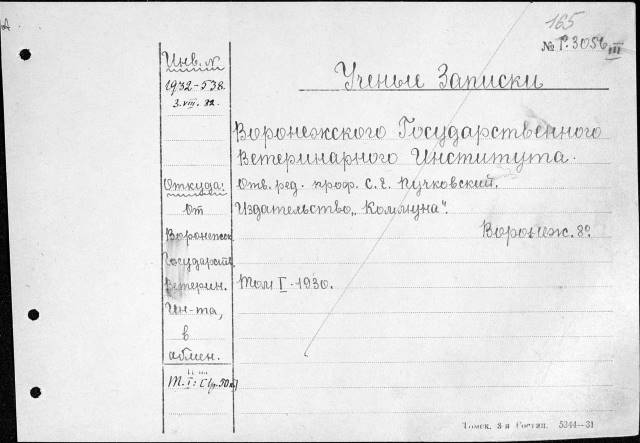 165
№ Р.3056 III
Инв. №
1932-538.
3.VIII.32.
Ученые Записки
Воронежского Государственного
Ветеринарного Института.
Откуда:
Отв. ред. проф. С. Е. Пучковский.
от
Издательство „Коммуна".
Воронежск.
Воронеж. 8º
Государств.
Ветерин.
Том I - 1930.
Ин-та,
в
обмен.
Т. I:
Томск. 3-я Гостип. 5344—31